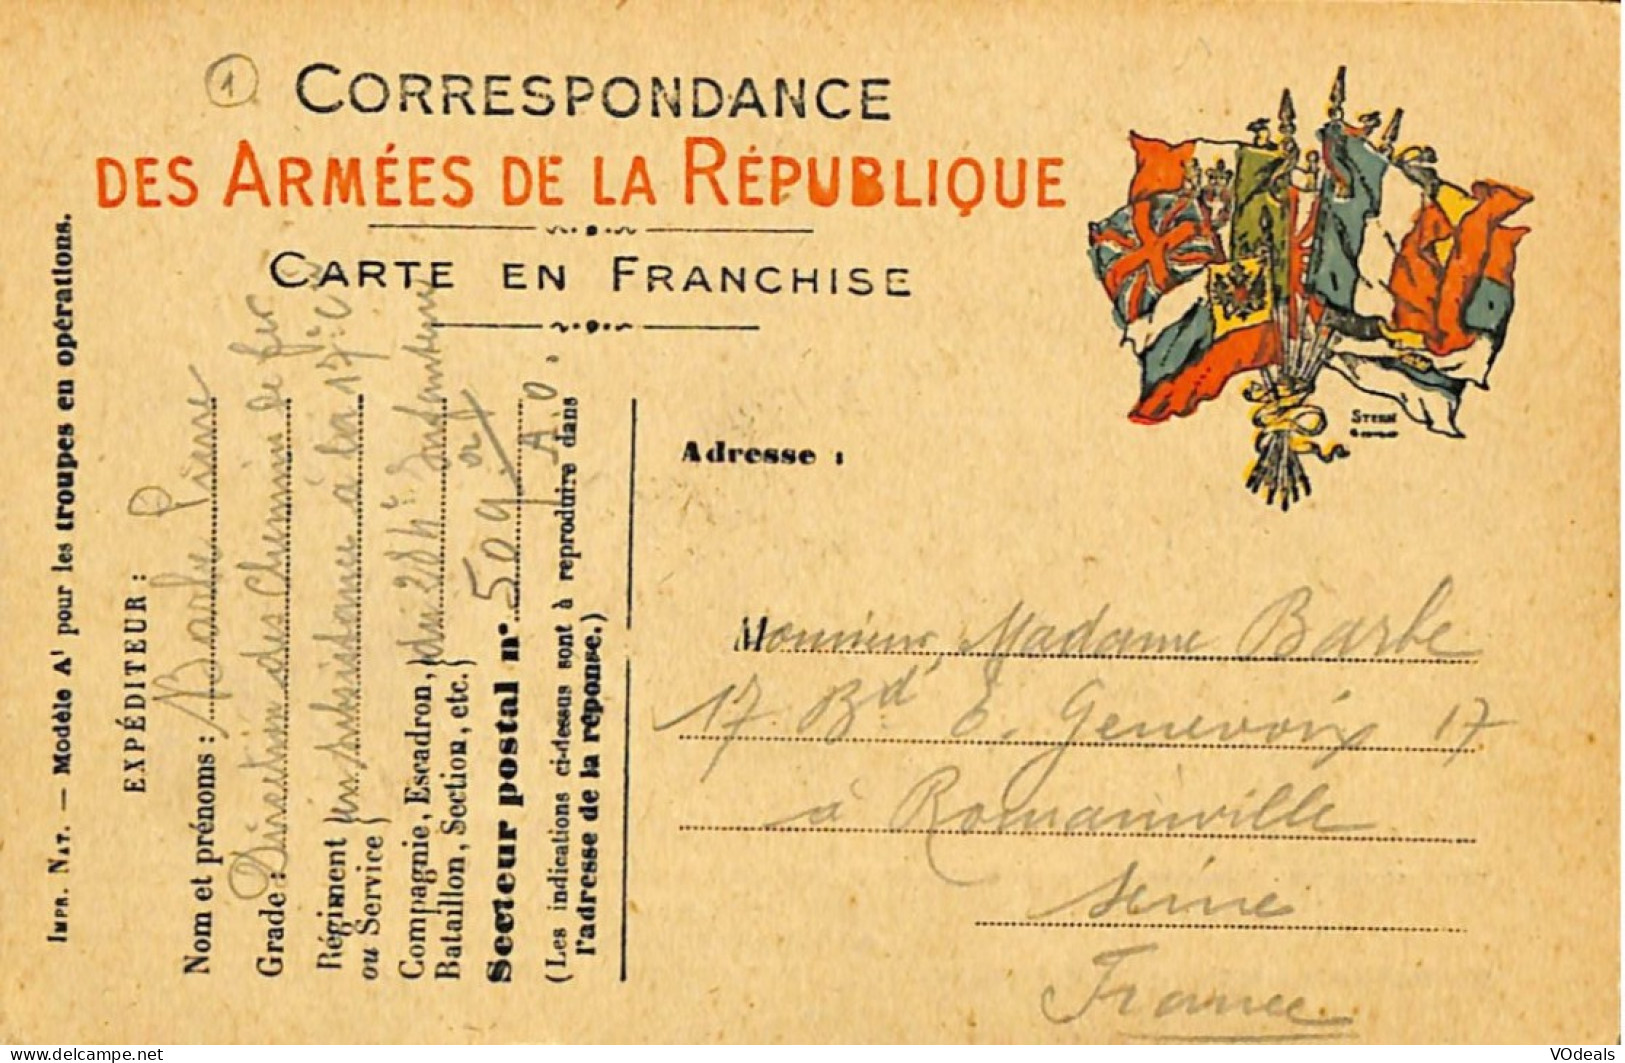 1
CORRESPONDANCE
DES ARMÉES DE LA RÉPUBLIQUE
CARTE EN FRANCHISE
IMPR. NAT. — Modèle A¹ pour les troupes en opérations.
EXPÉDITEUR :
Nom et prénoms : Barbe Pierre
Grade : Direction des Chemins de fer
Régiment ou Service } en subsistance à la 17e Cie
Compagnie, Escadron, Bataillon, Section, etc. } du 284e Infanterie
Secteur postal n° 509
A.O.
(Les indications ci-dessus sont à reproduire dans
l'adresse de la réponse.)
STERN
Adresse :
Monsieur, Madame Barbe
17 Bd E. Genevoix 17
à Romainville
Seine
France
VOdeals